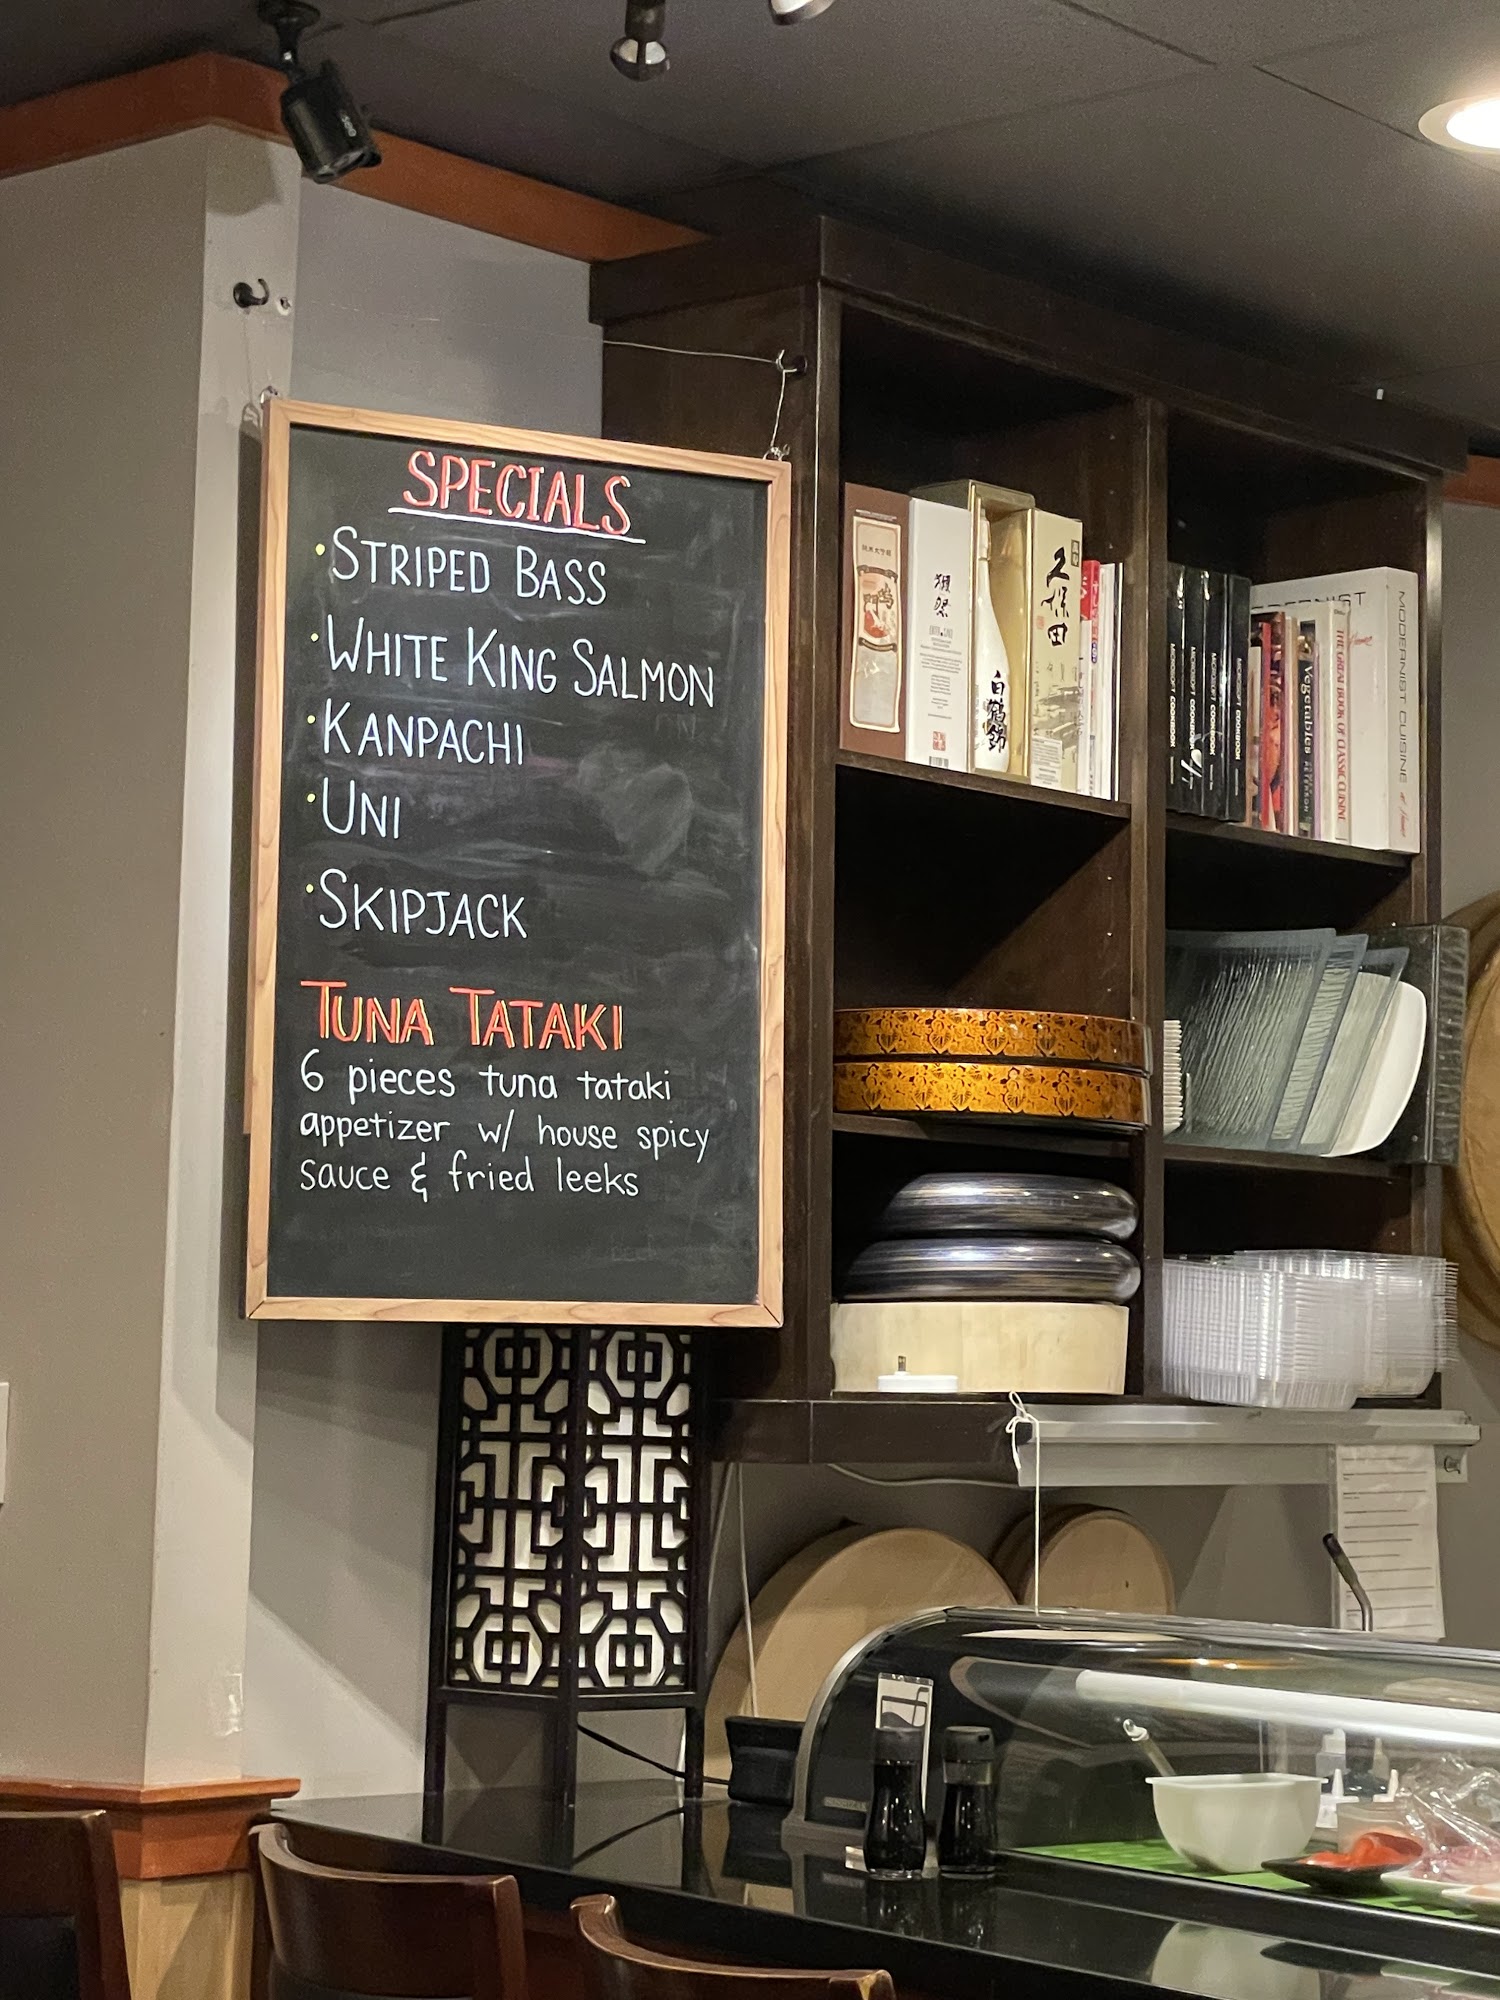 SPECIALS
• STRIPED BASS
• WHITE KING SALMON
• KANPACHI
• UNI
• SKIPJACK
TUNA TATAKI
6 pieces tuna tataki
appetizer w/ house spicy
sauce & fried leeks
獺祭
白鶴錦
久保田
MICROSOFT COOKBOOK
MICROSOFT COOKBOOK
MICROSOFT COOKBOOK
MICROSOFT COOKBOOK
Vegetables
PETERSON
THE GREAT BOOK OF CLASSIC CUISINE
MODERNIST CUISINE
at Home